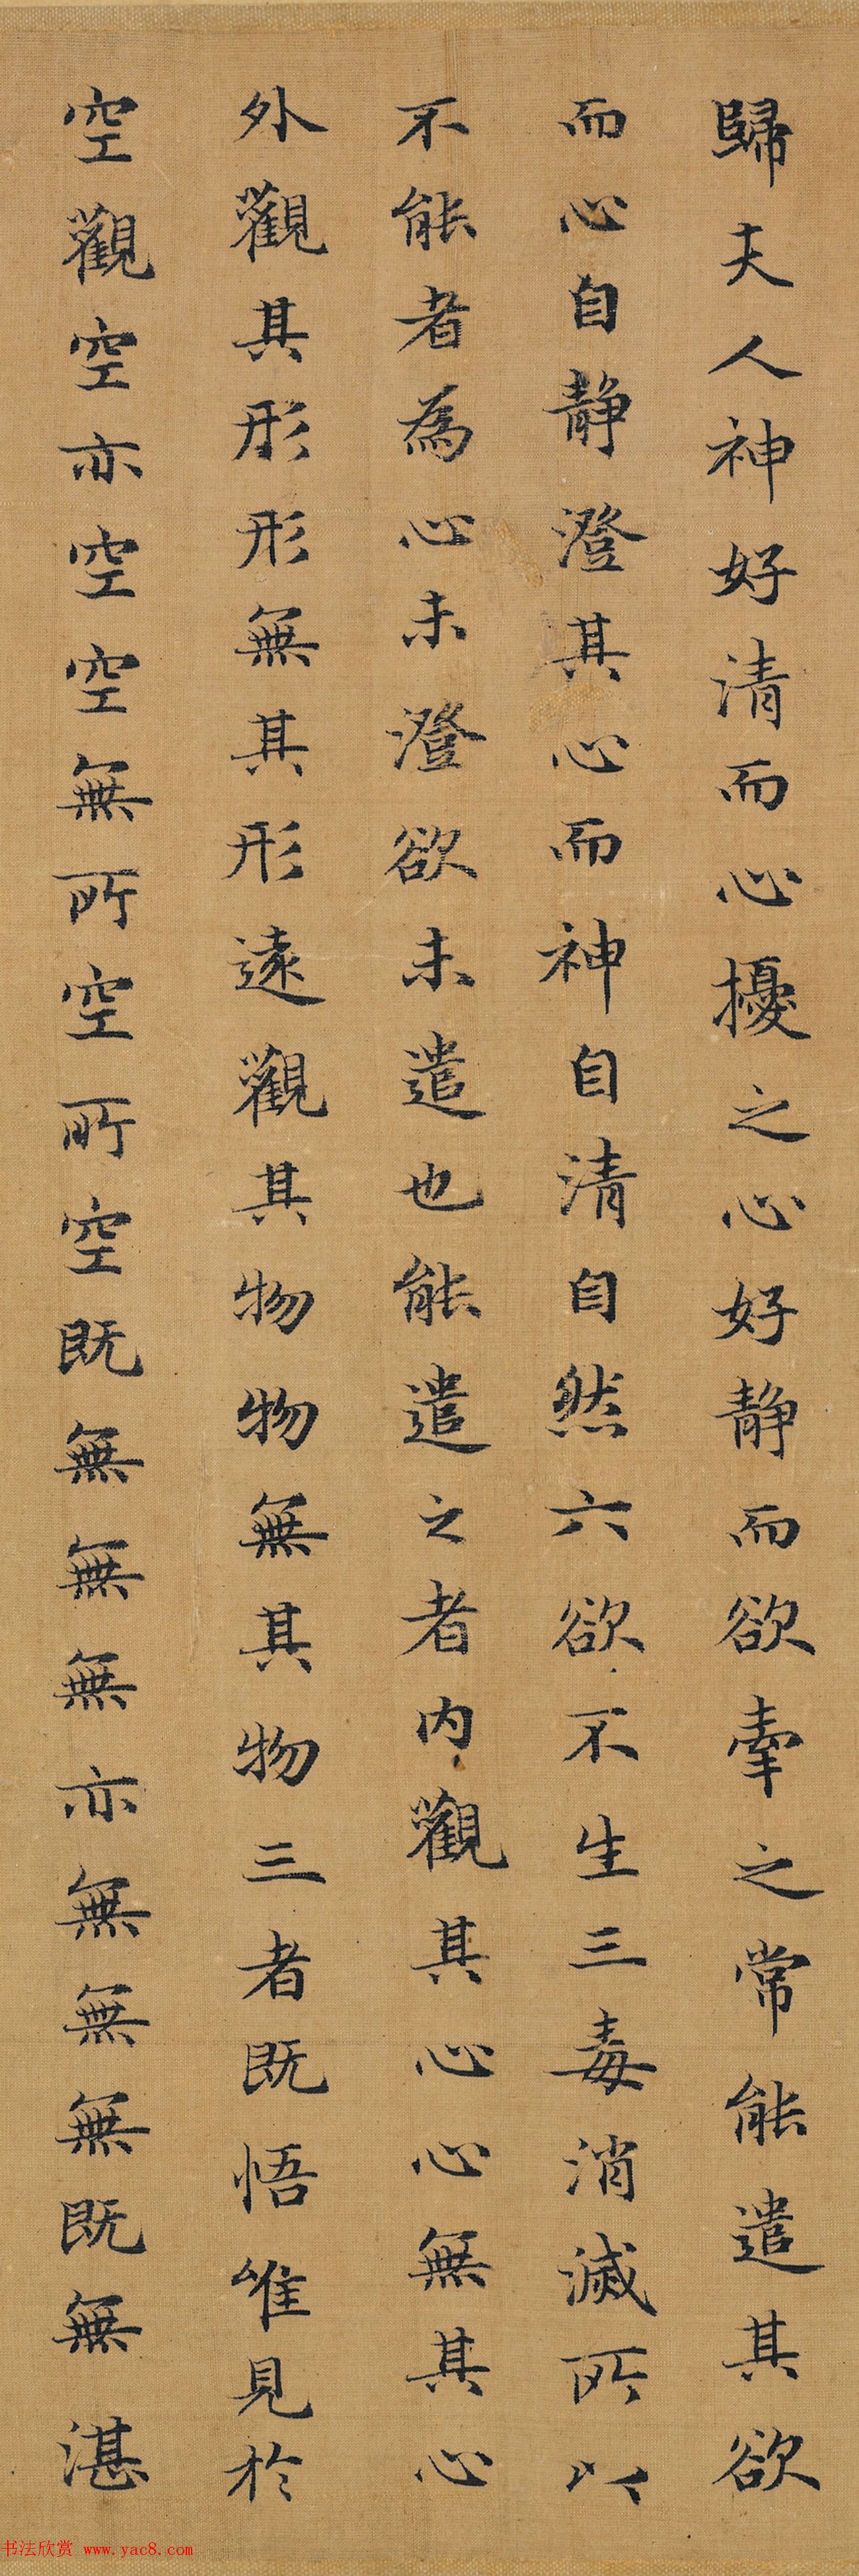 歸夫人神好清而心擾之心好静而欲牽之常能遣其欲
而心自静澄其心而神自清自然六欲不生三毒消滅所以
不能者為心未澄欲未遣也能遣之者内觀其心心無其心
外觀其形形無其形遠觀其物物無其物三者既悟唯見於
空觀空亦空空無所空所空既無無無亦無無無既無湛
书法欣赏 www.yac8.com